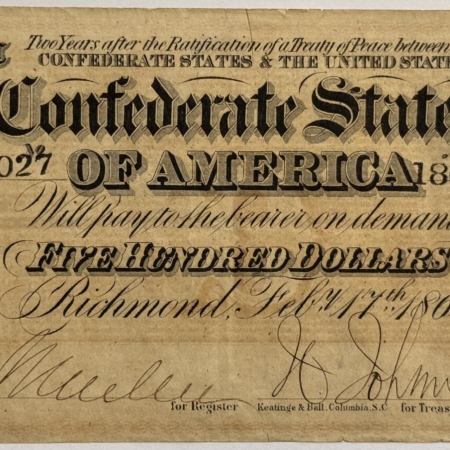 Two Years after the Ratification of a Treaty of Peace between
CONFEDERATE STATES & THE UNITED STATE
Confederate State
027 OF AMERICA 18
Will pay to the bearer on deman
FIVE HUNDRED DOLLARS
Richmond, Feby. 17th 186
for Register Keatinge & Ball, Columbia, S.C. for Treas